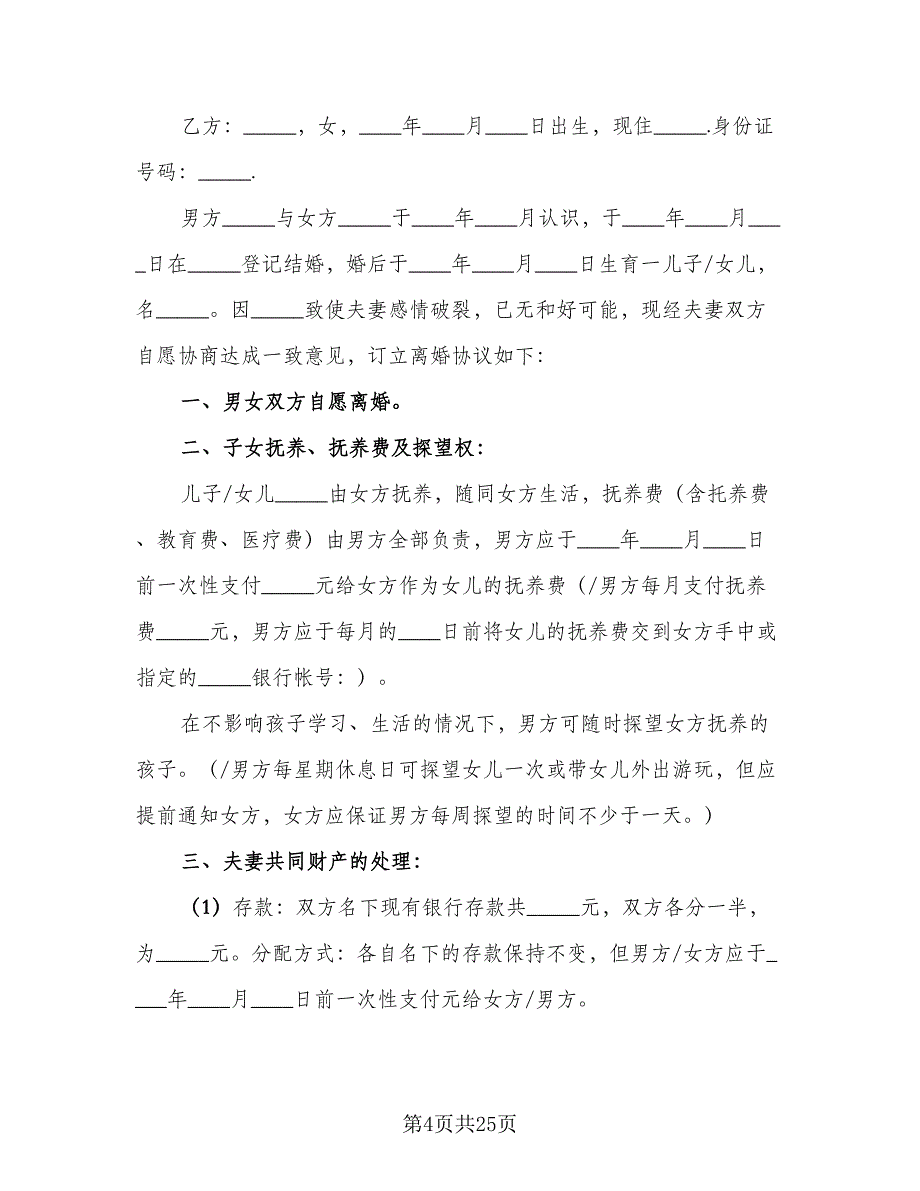 乙方：_____，女，____年____月____日出生，现住_____.身份证
号码：_____.
男方_____与女方_____于____年____月认识，于____年____月___
_日在_____登记结婚，婚后于____年____月____日生育一儿子/女儿，
名_____。因_____致使夫妻感情破裂，已无和好可能，现经夫妻双方
自愿协商达成一致意见，订立离婚协议如下：
一、男女双方自愿离婚。
二、子女抚养、抚养费及探望权：
儿子/女儿_____由女方抚养，随同女方生活，抚养费（含托养费
、教育费、医疗费）由男方全部负责，男方应于____年____月____日
前一次性支付_____元给女方作为女儿的抚养费（/男方每月支付抚养
费_____元，男方应于每月的____日前将女儿的抚养费交到女方手中或
指定的_____银行帐号：）。
在不影响孩子学习、生活的情况下，男方可随时探望女方抚养的
孩子。（/男方每星期休息日可探望女儿一次或带女儿外出游玩，但应
提前通知女方，女方应保证男方每周探望的时间不少于一天。）
三、夫妻共同财产的处理：
（1）存款：双方名下现有银行存款共_____元，双方各分一半，
为_____元。分配方式：各自名下的存款保持不变，但男方/女方应于_
___年____月____日前一次性支付元给女方/男方。
第4页共25页